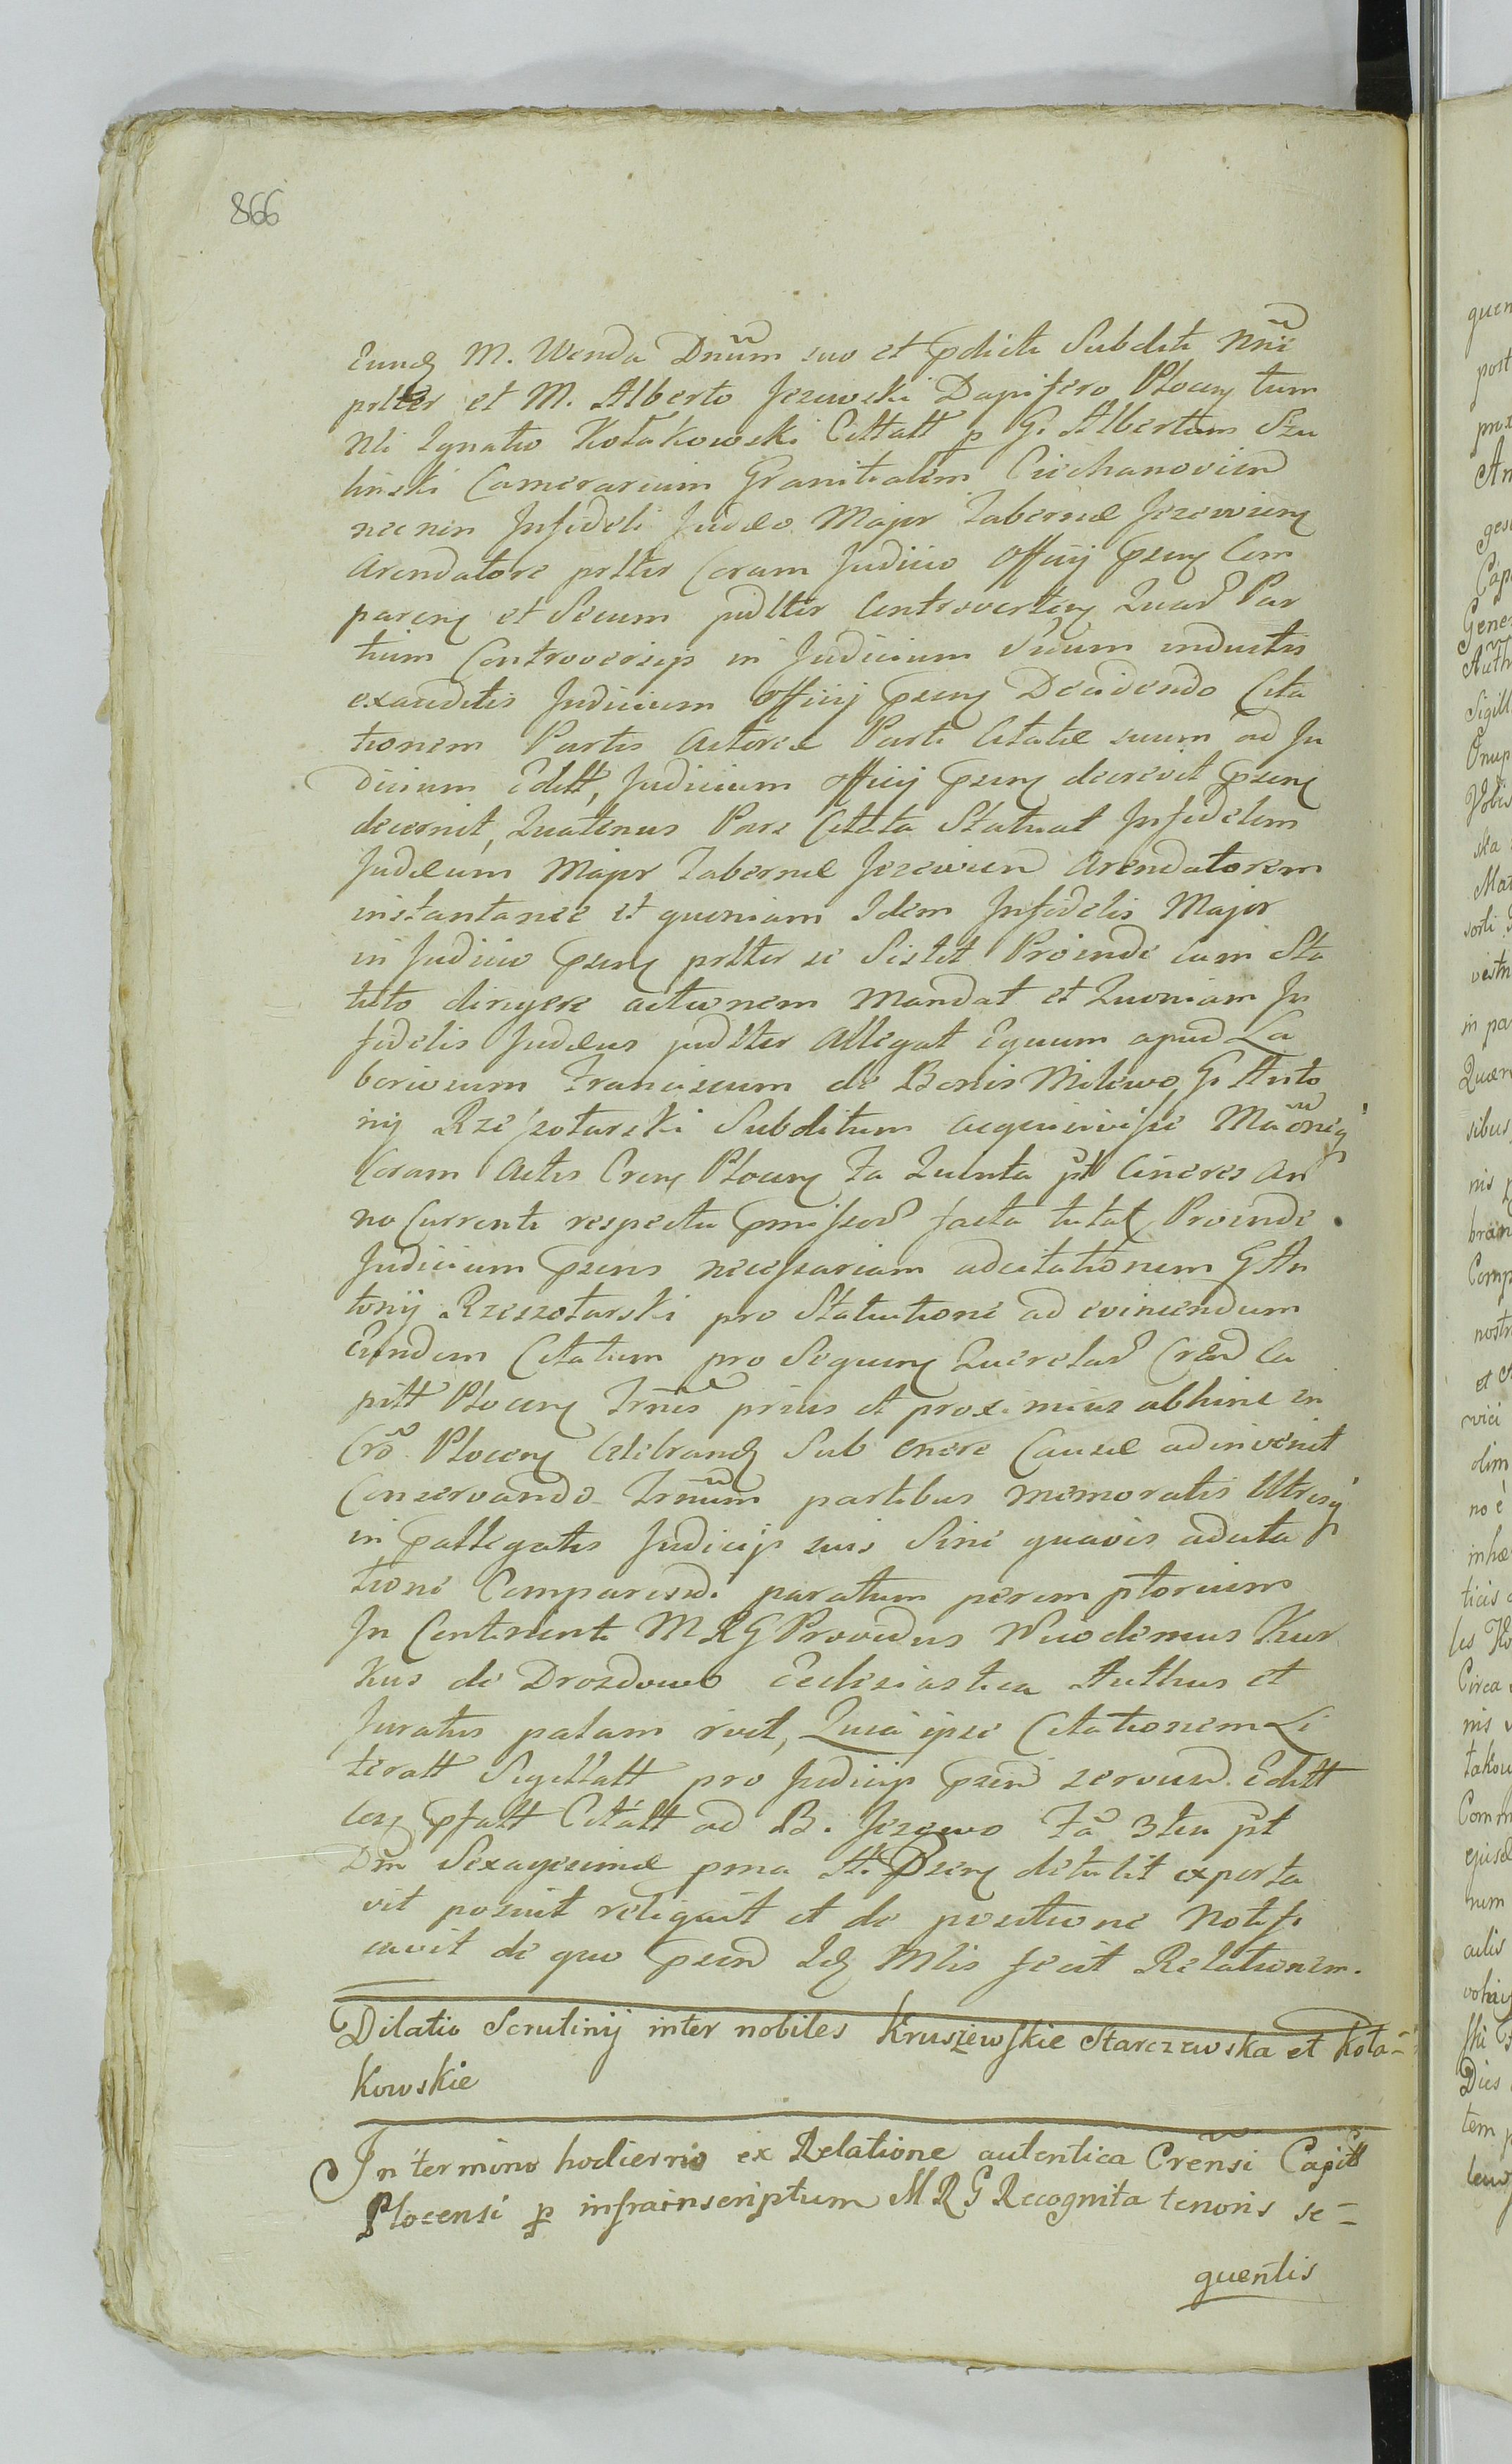 866
Eund M. Wenda Dnum suo et pdicti Subditi Nnie
prltter et M. Alberto Jezewski Dapifero Plocen tum
Nli Ignatio Kołakowski Cittatt p G. Albertum Szu
linski Camerarium Granitialem Ciechanovien
nec non Infideli Judæo Major Tabernæ Jezewien
Arendatore prltter Coram Judicio Officij psen Com
paren et Secum judltter Controverten Quar Par
tium Controversijs in Judicium Suum inductis
exauditis Judicium Officij psen Decidendo Cita
tionem Partis Actoreæ Parti Citatæ suum ad Ju
dicium Editt, Judicium Officij psen decrevit psen
decernit, Quatenus Pars Citata Statuat Infidelem
Judæum Major Tabernæ Jezewien Arendatorem
instantanee et quoniam Idem Infidelis Major
in Judicio psen prltter se Sistit Proinde cum Sta
tuto dirigere actionem Mandat et Quoniam In
fidelis Judæus judltter Allegat Equum apud La
boriosum Franciscum de Bonis Milewo G. Anto
nij Rzeszotarski Subditum acquisivisse
Coram Actis Cren Plocen Fa Quinta pt Cineres An
no Currenti respectu pmissor facta Proinde
Judicium psens necessariam adcitationem G An
tonij Rzeszotarski pro Statutione ad evincendum
Eundem Citatum pro Sequen Querelar Cren Ca
pitt Plocen Trnis prius et proximius abhinc in
Cro Plocen Celebrand Sub onere Causæ adinvenit
Conservando Trnum partibus memoratis Utrisq
in pallegatis Judicijs suis Sine quavis adcita
tione Comparendi paratum peremptorium
In Continenti MRG Providus Nicodemus Kur
kus de Drozdowo Ecclesiastica Authus et
Juratus palam rvit, Quia ipse Citationem Li
teratt Sigillatt pro Judicijs psen servien Editt
pfatt Citatt ad B. Jezewo Fa 3tia pt
Dm Sexagesimæ pma A. Psen detulit exporta
vit posuit reliquit et de positione Notifi
cavit de quo psen Id Mlis fecit Relationem.
Dilatio Scrutinij inter nobiles Kruszewskie Starczewska et Koła=
kowskie
In termino hodierno ex Relatione autentica Crensi Capitt
Plocensi p infrainscriptum MRG Recognita tenoris se=
quentis